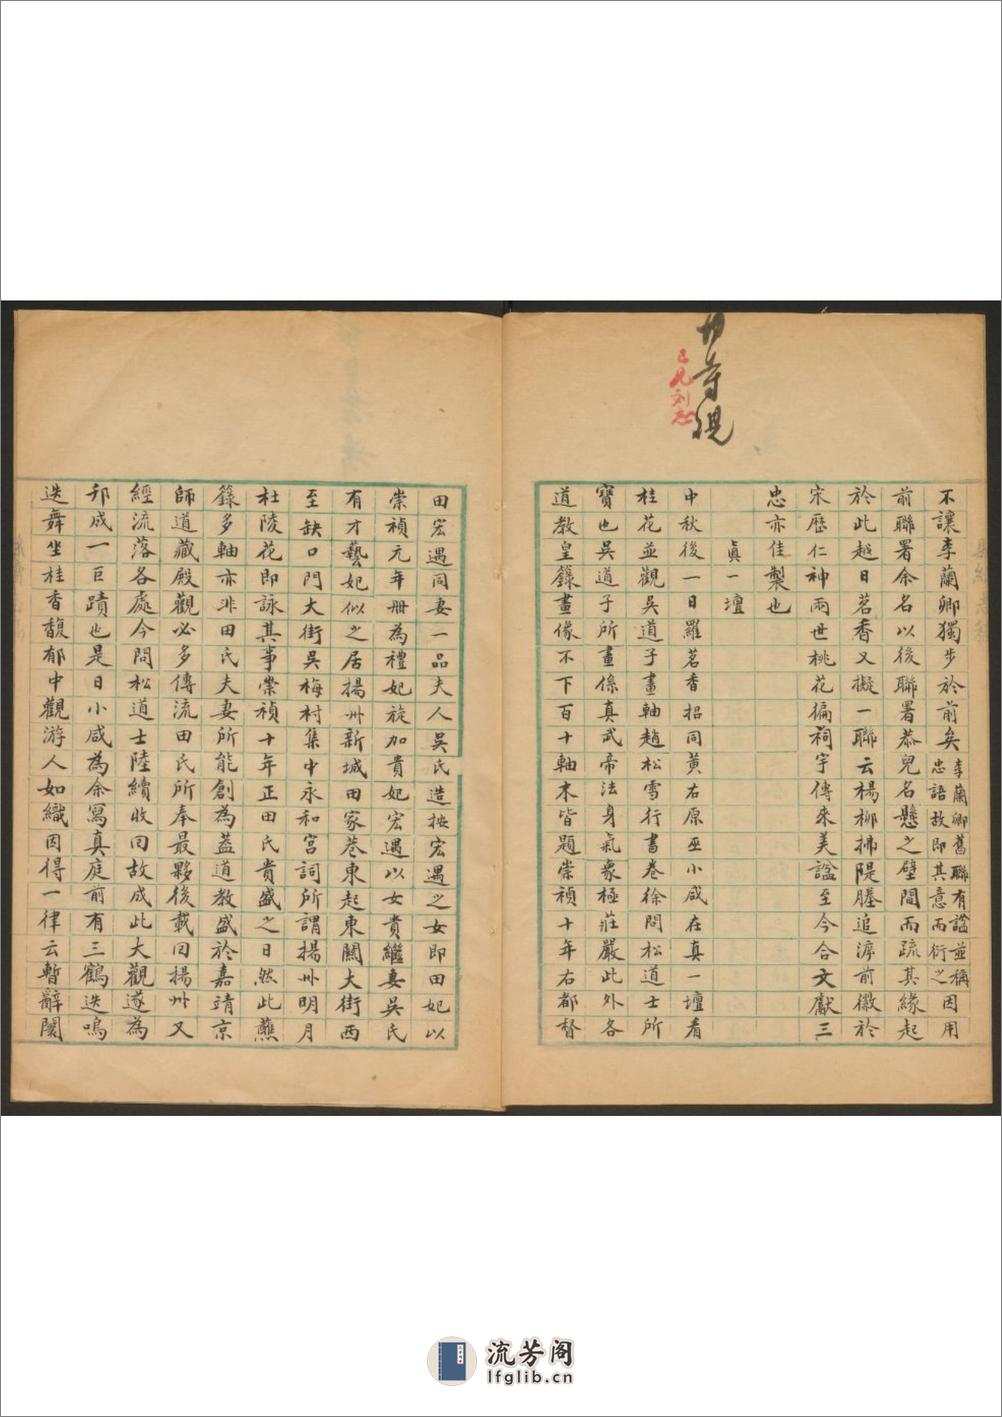 不讓李蘭卿獨步於前矣李蘭卿舊聯有諡並稱忠語故即其意而衍之因用
前聯署余名以後聯署恭兒名懸之壁間而疏其緣起
於此越日茗香又擬一聯云楊柳拂隄塍追溯前徽於
宋歷仁神兩世桃花徧祠宇傳來美諡至今合文獻三
忠亦佳製也
真一壇
中秋後一日羅茗香招同黃右原巫小咸在真一壇看
桂花並觀吳道子畫軸趙松雪行書卷徐問松道士所
寶也吳道子所畫係真武帝法身氣象極莊嚴此外各
道教皇籙畫像不下百十軸木皆題崇禎十年右都督
田宏遇同妻一品夫人吳氏造按宏遇之女即田妃以
崇禎元年冊為禮妃旋加貴妃宏遇以女貴繼妻吳氏
有才藝妃似之居揚州新城田家巷東起東關大街西
至缺口門大街吳梅村集中永和宮詞所謂揚州明月
杜陵花即詠其事崇禎十年正田氏貴盛之日然此醮
籙多軸亦非田氏夫妻所能創為蓋道教盛於嘉靖京
師道藏殿觀必多傳流田氏所奉最夥後載回揚州又
經流落各處今問松道士陸續收回故成此大觀遂為
邗成一巨蹟也是日小咸為余寫真庭前有三鶴迭鳴
迭舞坐桂香馥郁中觀游人如織因得一律云暫辭闤
已見刘志
流芳阁
lfglib.cn